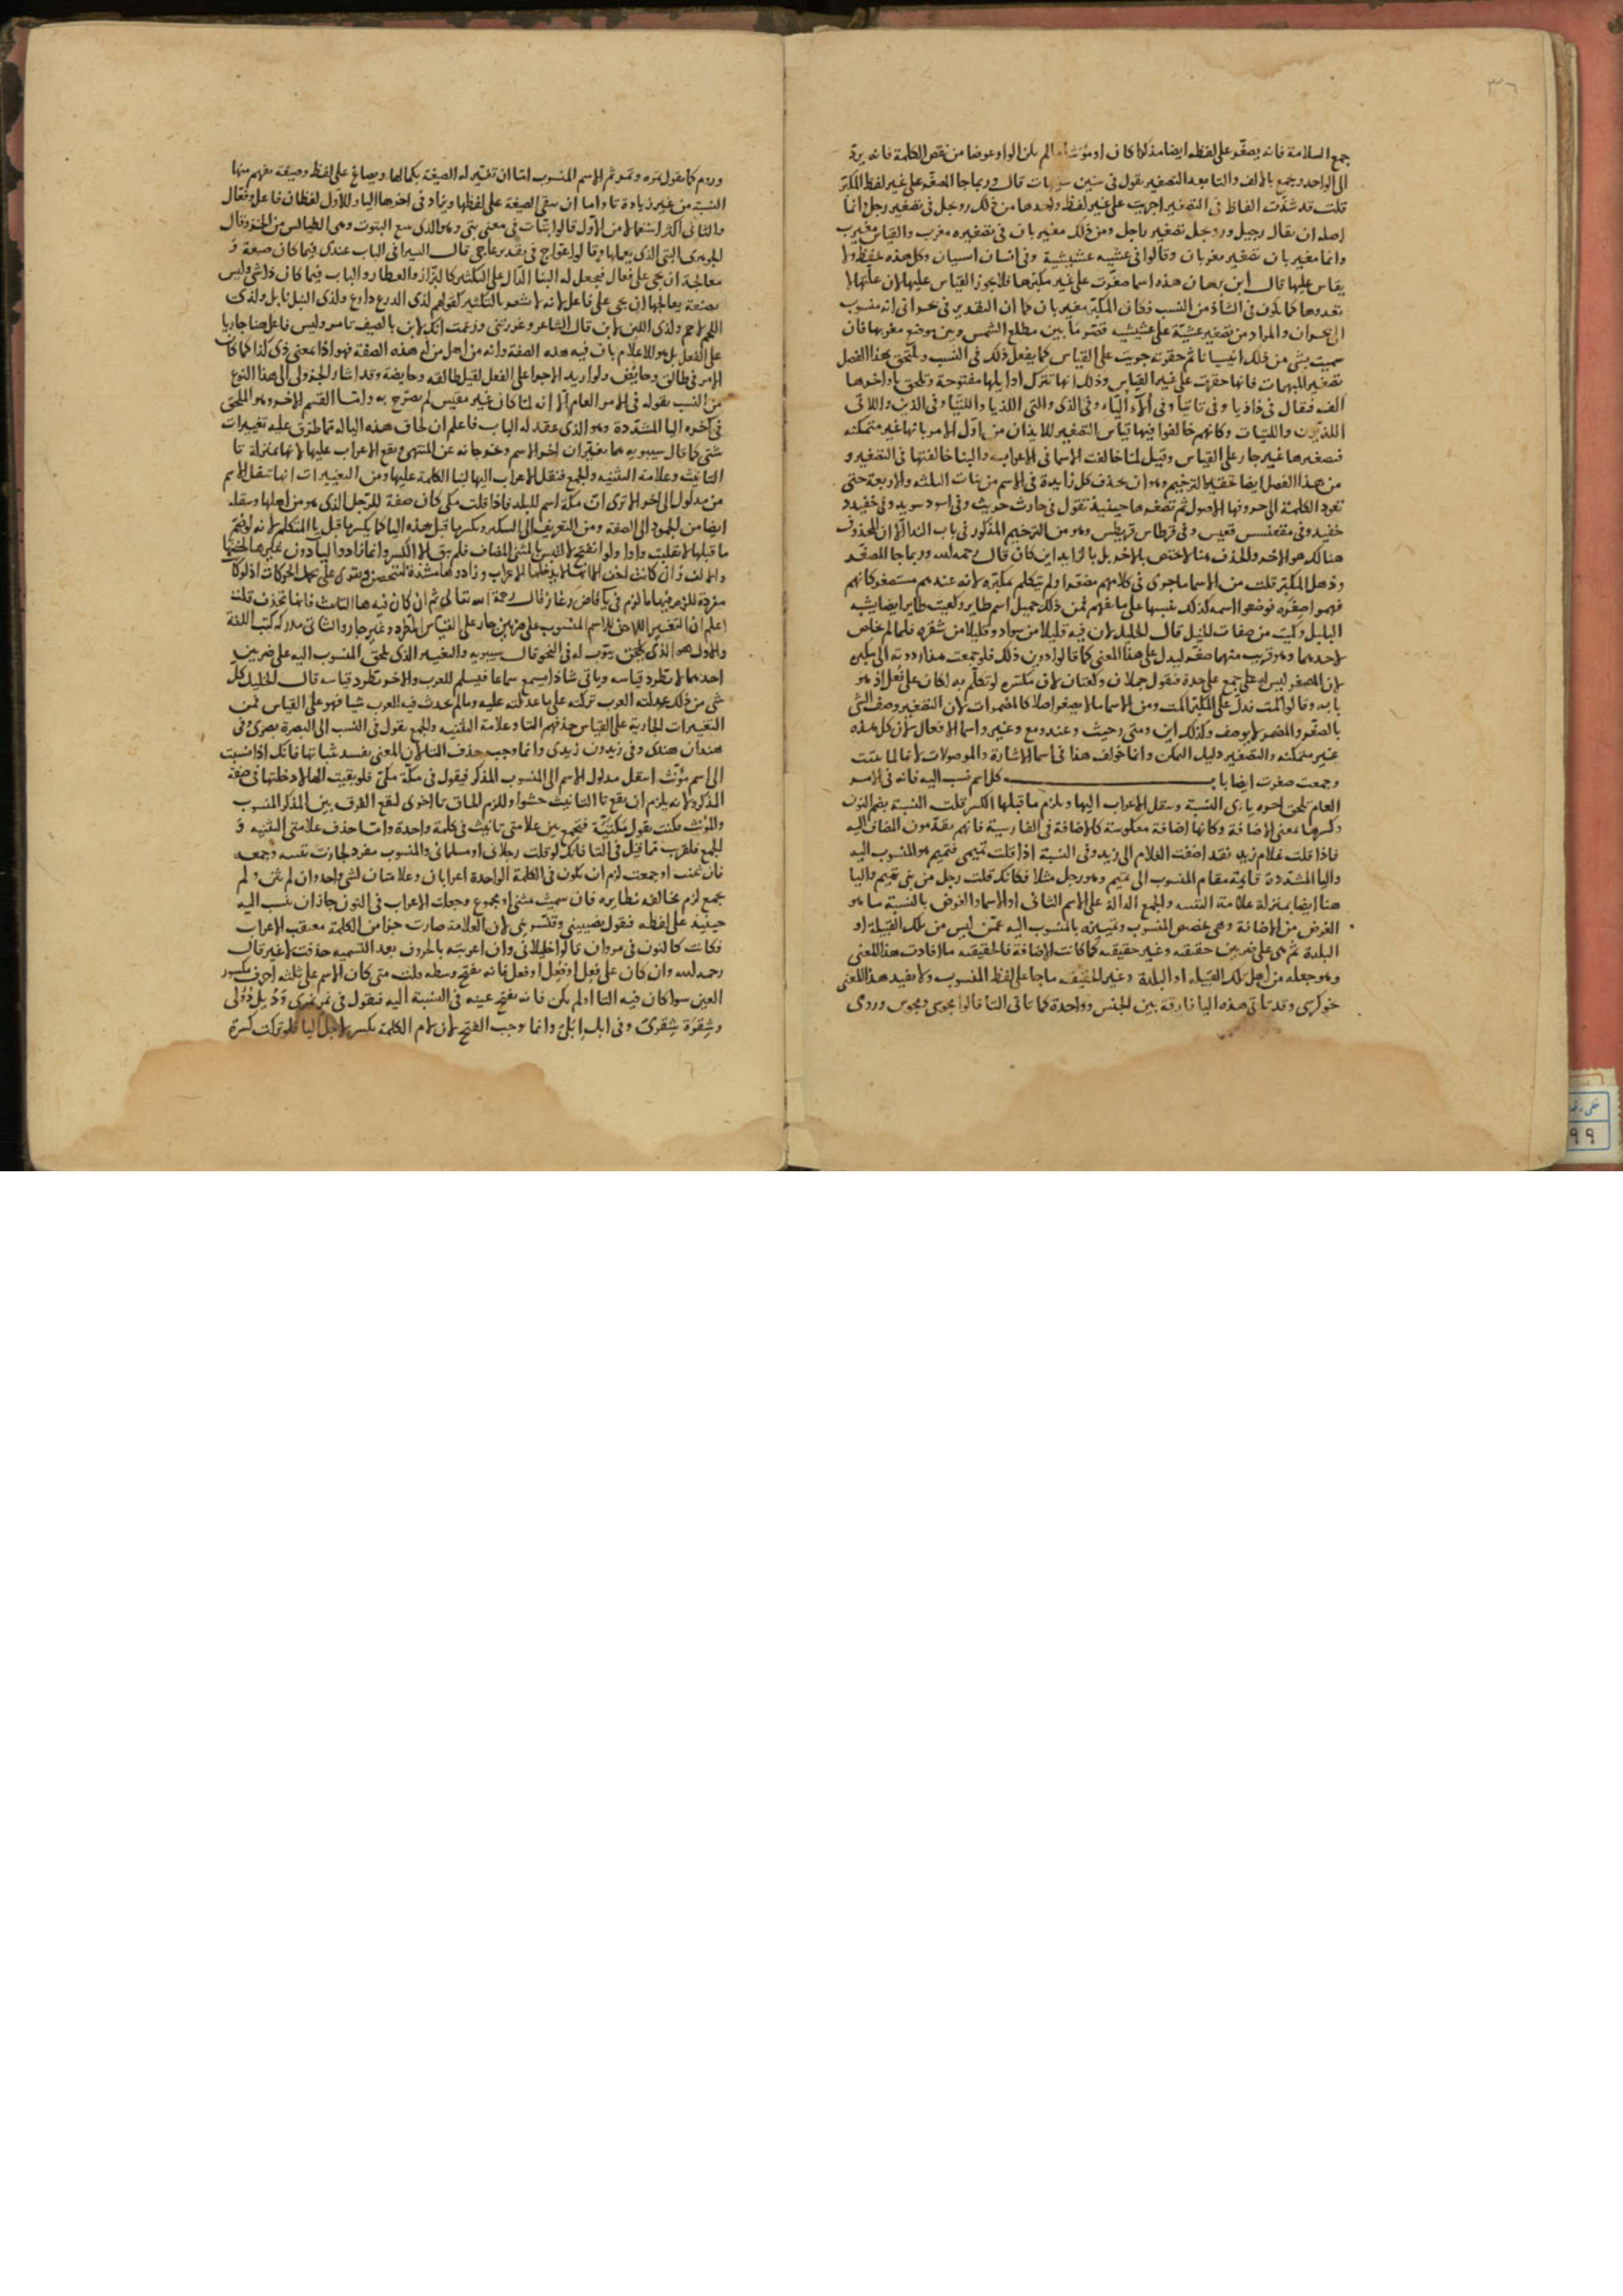 ٣٦
جمع السلامة فانه يصغر على لفظه ايضا مذكرا كان او مؤنثا ما لم يكن الواو عوضا من نقص الكلمة فانه يردّ
الى الواحد ويجمع بالالف والتا بعد التصغير يقول فى سنين سنيهات قال وربما جا المصغّر على غير لفظ المكبّر
قلت قد شذّت الفاظ فى التصغير اجريت على غير لفظ واحدها من ذلك رويجل فى تصغير رجل وانما
اصله ان يقال رجيل ورويجل تصغير راجل ومن ذلك مغيربان فى تصغيره مغرب والقياس مغيرب
وانما مغيربان تصغير مغربان وقالوا فى عشيه عشيشية وفى انسان انيسيان وكل هذه تحفظ ولا
يقاس عليها قال ابن برهان هذه اسما صغّرت على غير مكبّرها فلا يجوز القياس عليها لان علتها لا
تعدوها كما يكون فى الشاذ من النسب فكان المكبّر مغيربان كما ان التقدير فى بحرانى انه منسوب
الى بحران والمراد من تصغير عشيّة على عشيشيه قصر ما بين مطلع الشمس وبين موضع مغربها فان
سميت بشى من ذلك انسانا ثم حقرته جريت على القياس كما يفعل ذلك فى النسب ويلتحق بهذا الفصل
تصغير المبهمات فانها حقرت على غير القياس وذلك انها تترك اوايلها مفتوحة وتلحق باواخرها
الف فيقال فى ذا ذيا وفى تا تيا وفى ألاء أليّاء وفى الذى والتى اللذيا واللتيا وفى الذين واللاتى
اللذيّون واللتيات وكانهم خالفوا فيها قياس التصغير للايذان من اوّل الامر بانها غير متمكنه
فتصغيرها غير جار على القياس وقيل لما خالفت الاسما فى الاعراب والبنا خالفتها فى التصغير و
من هذا الفصل ايضا تحقير الترخيم وهو ان يحذف كل زايدة فى الاسم من بنات الثلثه والاربعة حتى
تعود الكلمة الى حروفها الاصول ثم تصغرها حينيذ فتقول فى حارث حريث وفى اسود سويد وفى خفيدد
خفيد وفى مقعنسس قعيس وفى قرطاس قريطس وهو من الترخيم المذكور فى باب الندا الا ان المحذوف
هنالك هو الاخر والحذف هنا لا يختص بالاخر بل بالزايد اين كان قال رحمه الله وربما جا المصغّر
وذهل المكبّر قلت من الاسما ما جرى فى كلامهم مصغّرا ولم يتكلم بمكبّره لانه عندهم مستصغر كانهم
فهموا صغره فوضعوا اسمه كذلك تنبيها على ما فهم فمن ذلك جميل اسم طاير وكعيت طاير ايضا يشبه
البلبل وكميت من صفات الخيل قال الخليل لان فيه قليلا من سواد وقليلا من شقره فلما لم يخلص
لاحدهما وهو قريب منهما صغّر ليدل على هذا المعنى كما قالوا دوين ذلك فلو جمعت هذا رددته الى مكبره
لان المصغر ليس له على جمع على حدة فتقول جملان وكعتان لان مكبّره لو تكلّم به لكان على فُعَل اذ هو
بابه وقالوا كُمت فدلّ على المكبّر اكمت ومن الاسما ما لا يصغر اصلا كالمضمرات لان التصغير وصف الشى
بالصغر والمضمر لا يوصف وكذلك اين ومتى وحيث وعند ومع وغير واسما الافعال لان كل هذه
غير متمكنه والتصغير دليل التمكن وانما خولف هذا فى اسما الاشارة والموصولات لانها لما ثنت
وجمعت صغرت ايضا باب كل اسم نسب اليه فانه فى الامر
العام يلحق اخره ياءى النسبة وينقل الاعراب اليها ويلزم ما قبلها الكسر قلت النسبة بضم النون
وكسرها بمعنى الاضافة وكانها اضافة معكوسة كالاضافة فى الفارسية فانهم يقدّمون المضاف اليه
فاذا قلت غلام زيد فقد اضفت الغلام الى زيد وفى النسبة اذا قلت تميمى فتميم هو المنسوب اليه
واليا المشدّدة قايمة مقام المنسوب الى تميم وهو رجل مثلا فكانك قلت رجل من بنى تميم واليا
هنا ايضا بمنزلة علامة التثنيه والجمع الدالة على الاسم الثانى او الاسما والغرض بالنسبة ما هو
الغرض من الاضافة وهى تخصص المنسوب وتميزه بالمنسوب اليه عمّن ليس من تلك القبيلة او
البلدة ثم هى على ضربين حقيقيه وغير حقيقيه كما كانت الاضافة فالحقيقيه ما لا فادت هذا المعنى
وهو جعله من اهل تلك القبيله او البلدة وغير الحقيقيه ما جا على لفظ المنسوب ولا يفيد هذا المعنى
نحو كرسى وقد تاتى هذه اليا فارقة بين الجنس وواحدة كما تاتى التا قالوا مجوسى ومجوس ورومى
وروم كما يقول تمره وتمر ثم الاسم المنسوب امّا ان تغيّر له الصيغة بكمالها ويصاغ على لفظ وصيغة يفهم منها
النسبة من غير زيادة تا واما ان تبقى الصيغة على لفظها ويزاد فى اخرها اليا وللاوّل لفظان فاعل وفعّال
والثانى اكثر استعمالا من الاول قالوا بتّات فى معنى بتّى وهو الذى يبيع البتوت وهى الطيالس من الخز وقال
الجوهرى البتى الذى يعملها وقالوا عوّاج فى تقدير عاجى قال السيرافى الباب عندى فيما كان صنعة و
معالجة ان يجى على فعّال فيجعل له البنا الدّال على التكثير كالبزاز والعطار والباب فيما كان ذا شى وليس
بصنعة يعالجها ان يجى على فاعل لانه لا شعر بالتكثير كقولهم لذى الدرع دارع ولذى النبل نابل ولذى
اللحم لاحم ولذى اللبن لابن قال الشاعر وغررتنى وزعمت انك لابن بالصيف تامر وليس فاعل هنا جاريا
على الفعل بل هو للاعلام بان فيه هذه الصفة وانه من اهل من له هذه الصفة فهو اذا بمعنى ذى كذا كما كان
الامر فى طالق وحايض ولو اريد الاجرا على الفعل لقيل طالقه وحايضة وقد اشار الجزولى الى هذا النوع
من النسب بقوله فى الامر العام الا انه لما كان غير مقيس لم يصرّح به وامّا القسم الاخر وهو الملحق
فى آخره اليا المشدّدة وهو الذى عقد له الباب فاعلم ان لحاق هذه اليا له تما طرق عليه تغييرات
شتى كما قال سيبويه مما يغيّران اخر الاسم وخروجانه عن المنتهى ويقع الاعراب عليها لانها بمنزلة تا
التانيث وعلامة التثنيه والجمع فتنقل الاعراب اليها لبنا الكلمة عليها ومن التغييرات انها تنقل الاسم
من مدلول الى اخر الا ترى انّ مكّة اسم للبلد فاذا قلت مكى كان صفة للرجل الذى هو من اهلها وينقله
ايضا من الجمود الى الصفة ومن التعريف الى التنكير ويكسر ما قبل هذه اليا كما يكسر ما قبل يا المتكلم لانه لو ضمّ
ما قبلها لانقلبت واوا ولو انفتح لالتبس بالمثنى المضاف فلم يبق الا الكسر وانما زادوا اليا دون غيرها لخفتها
مفردة للزم فيها ما لزم فى يا قاضٍ وغاز قال رحمه الله تعالى ثم ان كان فيه ها التانيث فانها تحذف قلت
اعلم ان التغيير اللاحق للاسم المنسوب على ضربين جار على القياس المطّرد وغير جار والثانى مدركه كتب اللغة
والاول هو الذى يلحق يبوّب له فى النحو قال سيبويه والتغيير الذى يلحق المنسوب اليه على ضربين
احدهما لا يطّرد قياسه وياتى شاذا يسمع سماعا فيسلم للعرب والاخر يطّرد قياسه قال الخليل كل
شى من ذلك عدلته العرب تركته على ما عدلته عليه وما لم يحدث فيه العرب شيا فهو على القياس فمن
التغييرات الجارية على القياس حذفهم التا وعلامة التثنيه والجمع يقول فى النسب الى البصرة بصرىّ وفى
هندان هندى وفى زيدون زيدى وانما وجب حذف التا لان المعنى يفسد ثباتها فانك اذا نسبت
الى اسم مؤنّث انتقل مدلول الاسم الى المنسوب المذكر فيقول فى مكّة مكىّ فلو بقيت الها لادخلتها فى صفة
المذكر ولانه يلزم ان يقع تا التانيث حشوا وللزم الحاق تا اخرى ليقع الفرق بين المذكر المنسوب
والمؤنث فكنت يقول مكّتيّة فيجمع بين علامتى تانيث فى كلمة واحدة وامّا حذف علامتى التثنيه و
الجمع فلقرب مما قيل فى التا فانك لو قلت رجلانى او مسلمانى والمنسوب مفرد لجازت تثنيته وجمعه
فان ثنيت او جمعت لزم ان يكون فى الكلمة الواحدة اعرابان وعلامتان لشى واحد وان لم يثن ولم
يجمع لزم مخالفه نظايره فان سميت بمثنى او مجموع وجعلت الاعراب فى النون جاز ان ينسب اليه
حينيذ على لفظه فيقول نصيبينى وقنّسرينى لان العلامة صارت جزا من الكلمة معتقب الاعراب
فكانت كالنون فى مروان قالوا خليلانى وان اعربته بالحروف بعد التسميه حذفت لا غير قال
رحمه الله وان كان على فَعِل او فُعِل او فِعِل فانه يفتح وسطه قلت متى كان الاسم على ثلثه احرف مكسور
العين سوا كان فيه التا او لم يكن فانه يفتح عينه فى النسبة اليه فيقول فى نمر نمرى ودُئِل دُؤَلى
وشِقرَة شِقرىّ وفى ابل إبَلىّ وانما وجب الفتح لان لام الكلمة يكسر لاجل اليا فلو تركت كسرة
٩٩